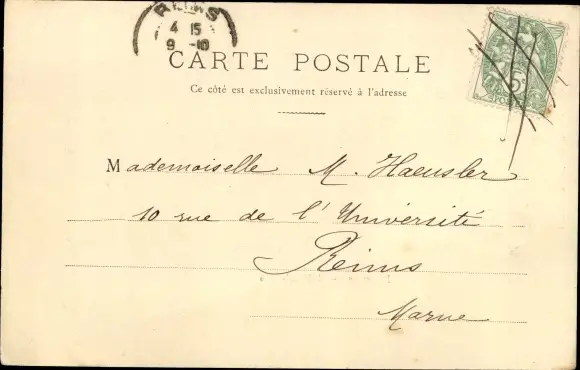 REIMS
4 15
9 -10
CARTE POSTALE
Ce côté est exclusivement réservé à l'adresse
5c
POSTES
Mademoiselle M. Haeusler
10 rue de l'Université
Reims
Marne